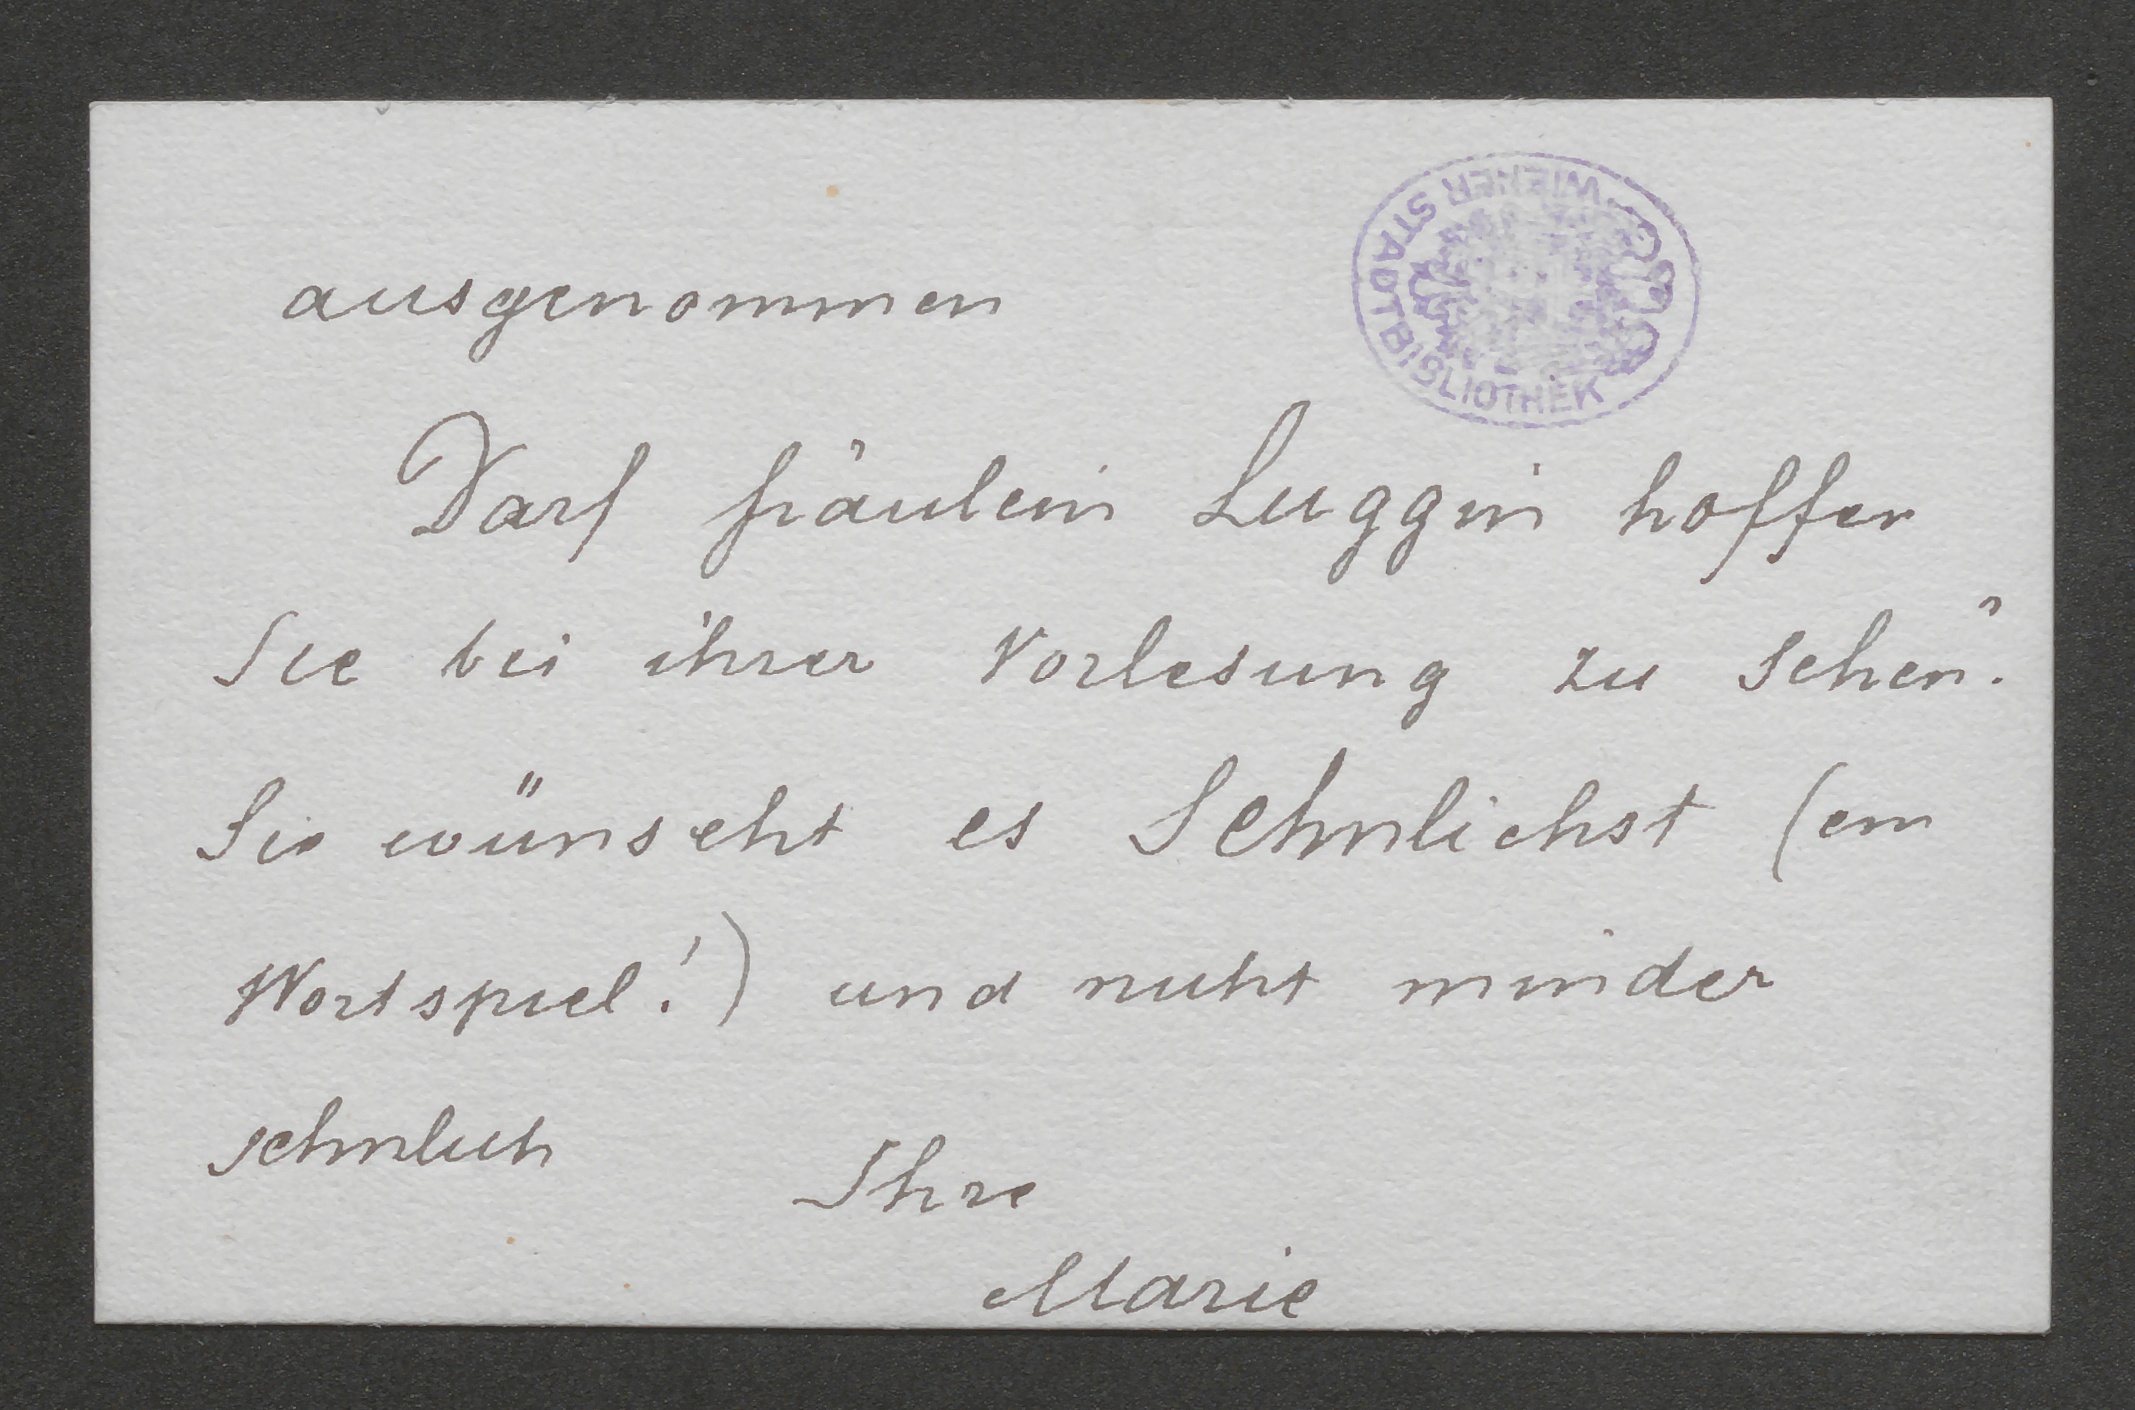 ausgenommen
WIENER STADTBIBLIOTHEK
Darf Fräulein Luggin hoffen
Sie bei ihrer Vorlesung zu sehen?
Sie wünscht es Sehnlichst (ein
Wortspiel!) und nicht minder
sehnlich
Ihre
Marie